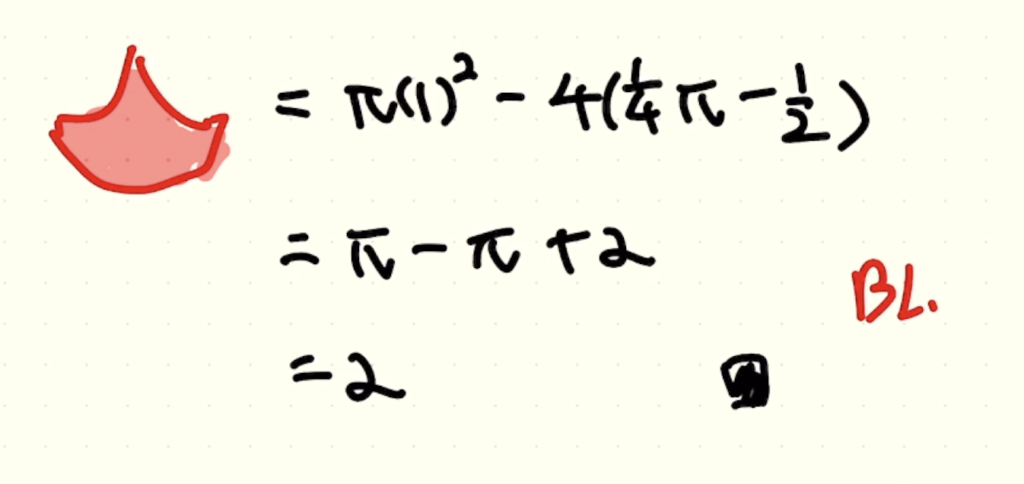 = π(1)² - 4(¼π - ½)
= π - π + 2
BL.
= 2